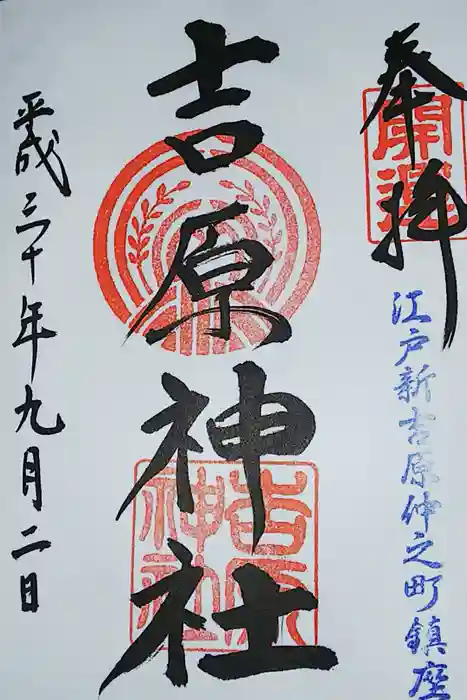 奉拝
開運
江戸新吉原仲之町鎮座
吉原神社
吉原神社
平成三十年九月二日